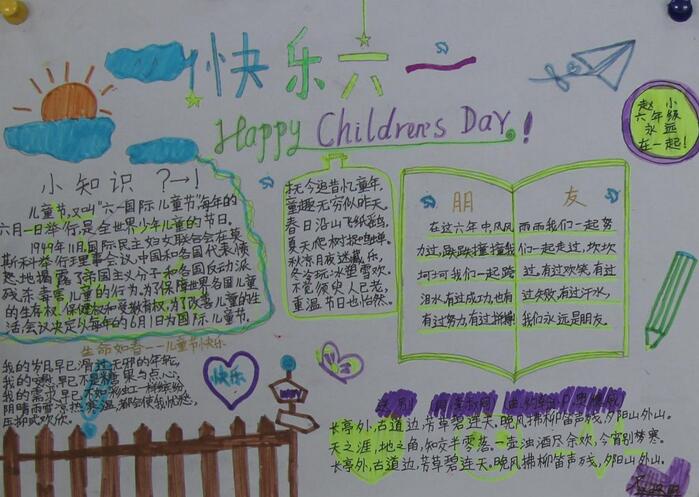 快乐六一
Happy Children's Day!
赵小
六年级
永远
在一起!
小知识 ?→!
儿童节,又叫"六一国际儿童节"每年的
六月一日举行,是全世界少年儿童的节日。
1949年11月国际民主妇女联合会在莫
斯科举行理事会议,中国和各国代表愤
怒地揭露了帝国主义分子和各国反动派
残杀毒害儿童的行为。为了保障世界各国儿童
的生存权、保健权和受教育权,为了改善儿童的生
活会议决定以每年的6月1日为国际儿童节。
抚今追昔忆童年,
童趣无穷似昨天。
春日沿山飞纸鸢,
夏天爬树捉鸣蝉。
秋宵月夜迷藏乐,
冬令玩冰塑雪欢。
不觉须臾人已老,
重温节日也怡然。
朋友
在这六年中风风雨雨我们一起努
力过,跌跌撞撞我们一起走过,坎坎
坷坷我们一起跨过,有过欢笑,有过
泪水,有过成功,也有过失败,有过汗水,
有过努力,有过拼搏我们永远是朋友。
生命如春——儿童节快乐
我的岁月早已滑过无邪的年轮,
我的早已不是糖果与点心,
我的需求早已不如彩虹一样缤纷
阴晴雨雪凉热都会使我忧愁,
压抑或欢欣。
快乐
长亭外,古道边,芳草碧连天。晚风拂柳笛声残,夕阳山外山。
天之涯,地之角,知交半零落。一壶浊酒尽余欢,今宵别梦寒。
长亭外,古道边,芳草碧连天。晚风拂柳笛声残,夕阳山外山。